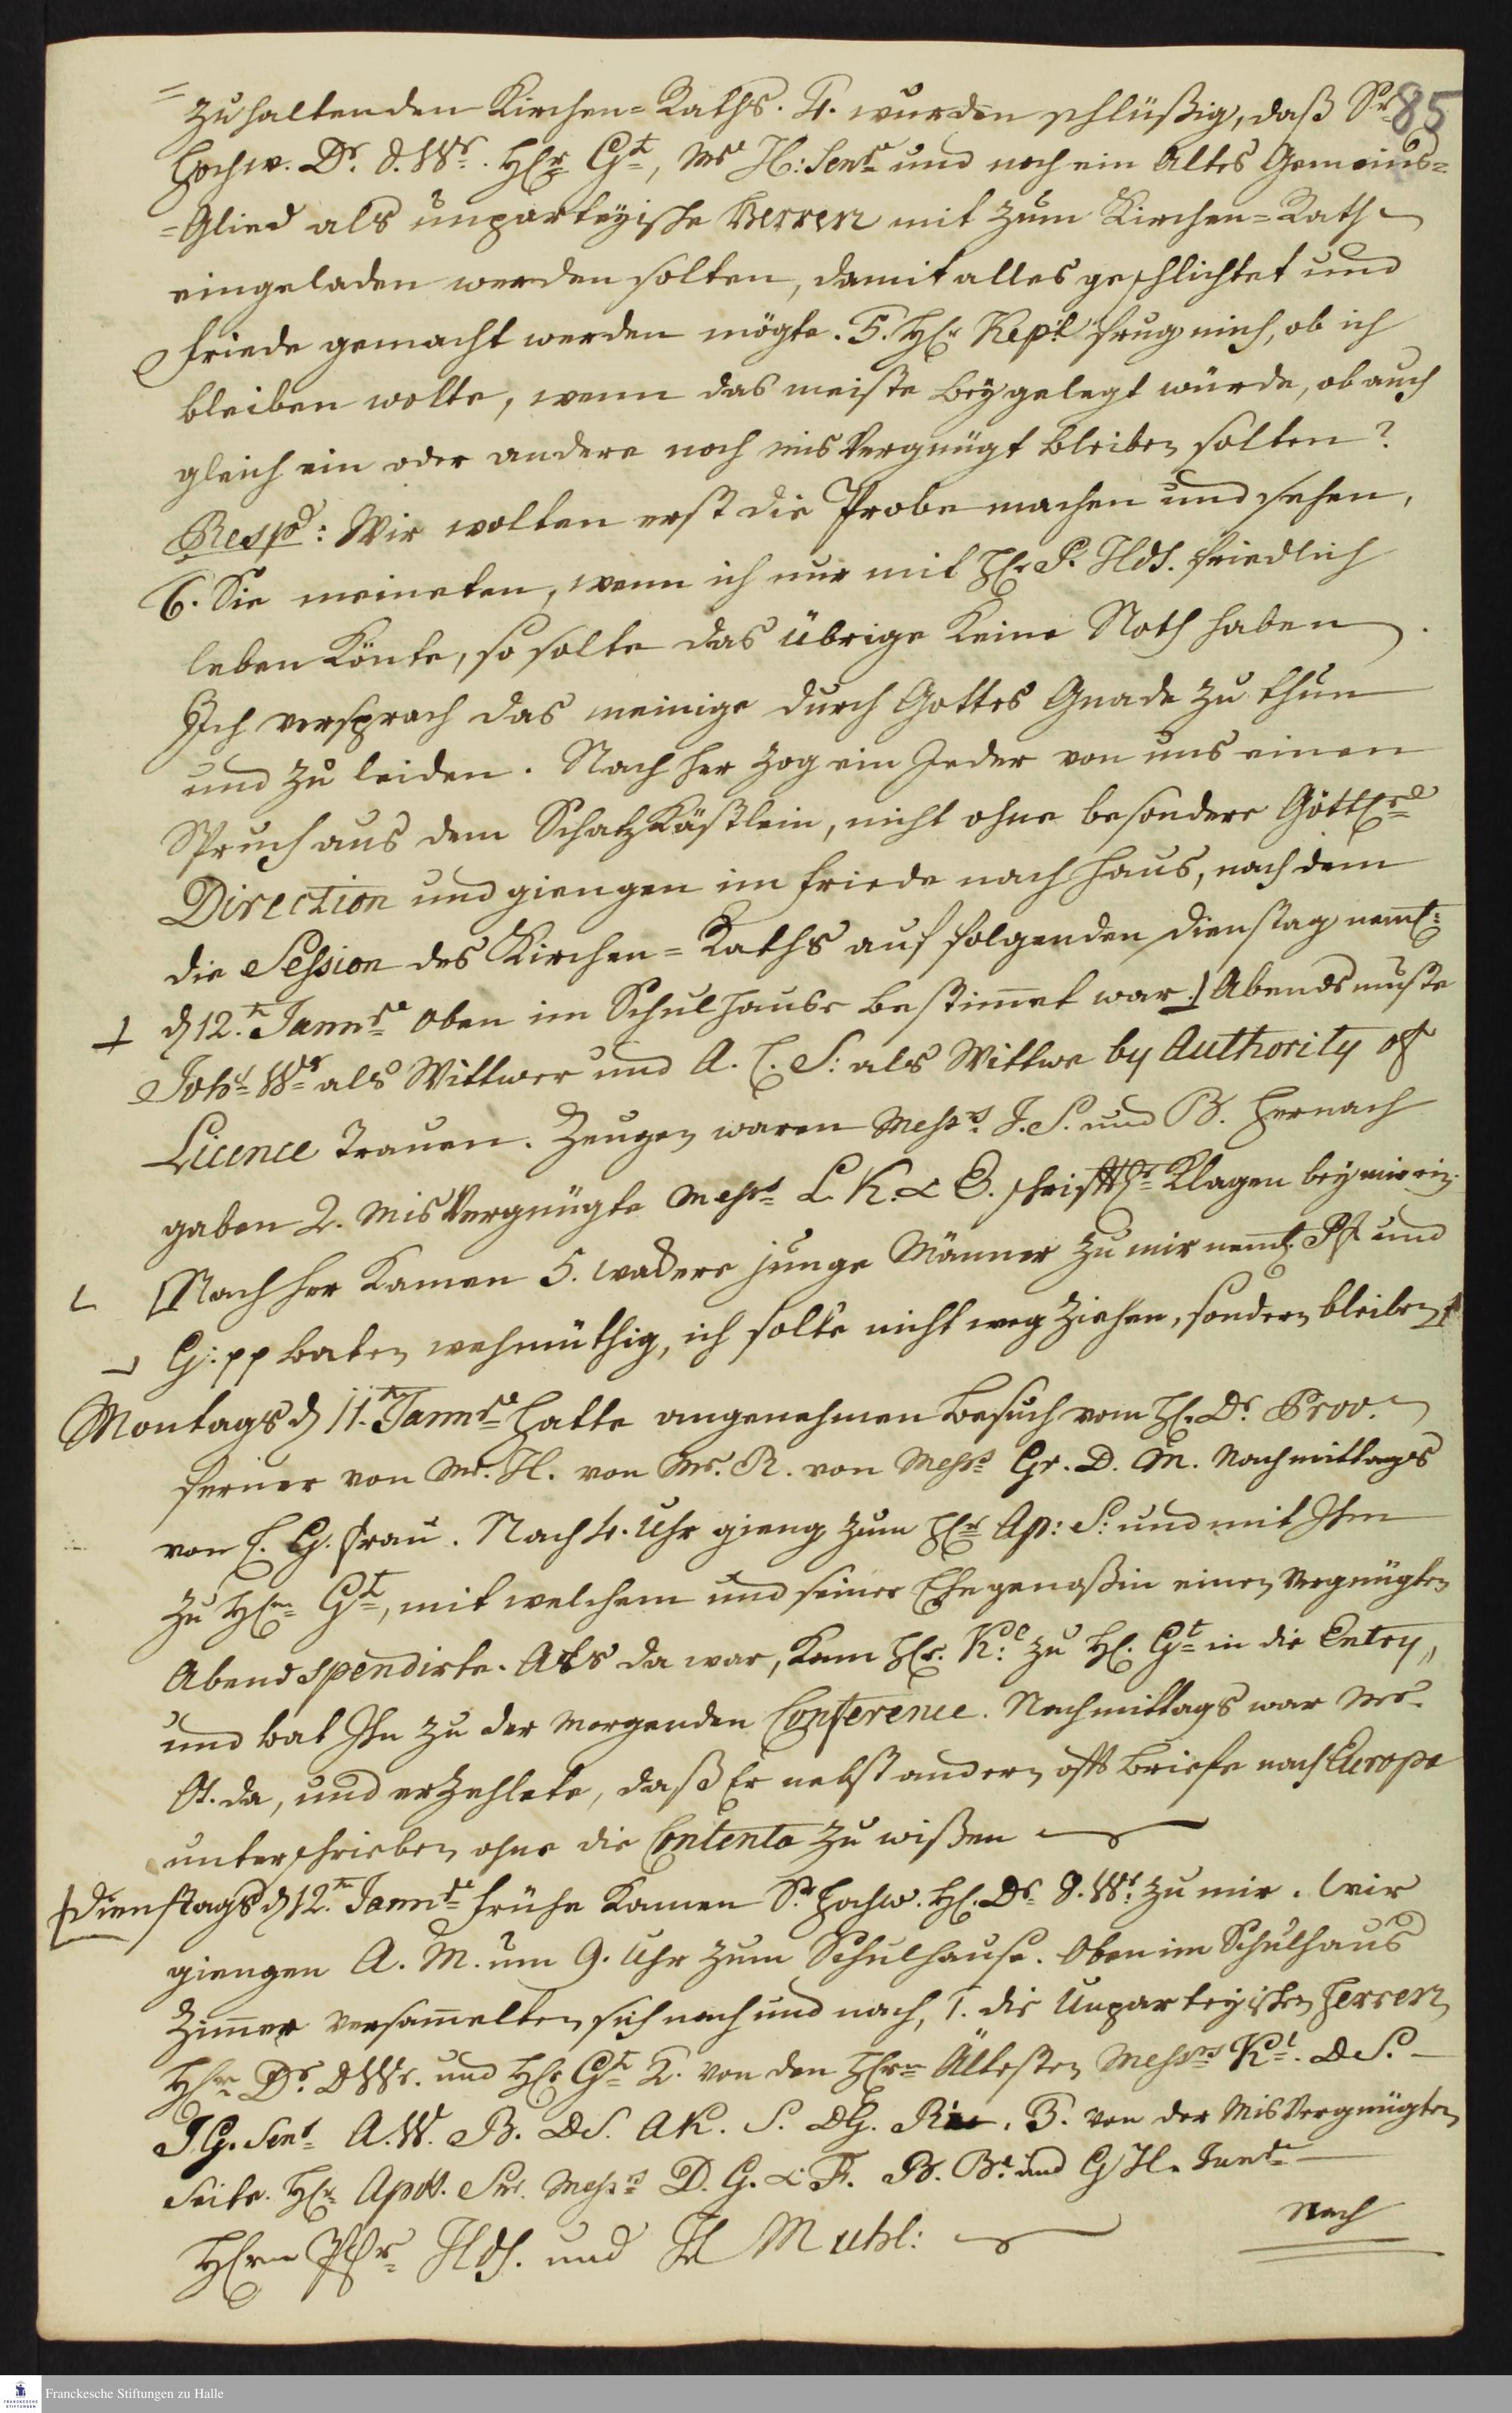 85
zuhaltenden Kirchen=Raths. 4. wurden schlüßig, daß Sr
Hochw. Dr. v. Wr. Hr Gt, Mr H: Senr und noch ein Altes Gemeins=
=Glied als unparteyische Herren mit zum Kirchen=Rath
eingeladen werden solten, damit alles geschlichtet und
Friede gemacht werden mögte. 5. HEr Kepl frug mich, ob ich
bleiben wolte, wenn das meiste beygelegt würde, ob auch
gleich ein oder andere noch misvergnügt bleiben solten?
Resp: Wir wolten erst die Probe machen und sehen,
6. Sie meineten, wenn ich nur mit HEr P. Hds. friedlich
leben könte, so solte das übrige keine Noth haben.
Ich versprach das meinige durch Gottes Gnade zu thun
und zu leiden. Nach her zog ein Jeder von uns einen
Spruch aus dem Schatz Kästlein, nicht ohne besondere Göttle
Direction und giengen im Friede nach Haus, nach dem
die Session des Kirchen=Raths auf folgenden Dienstag neml:
d 12.t Jannr oben im Schulhause bestimet war. Abends muste
Johs Wr als Wittwer und A. C. S: als Wittwe by Authority of
Licence trauen. Zeugen waren Messrs J. S. und B. Hernach
gaben 2. Misvergnügte Messrs L. K. & E. schriftle Klagen bey mir ein.
Nach her kamen 5. wackere junge Männer zu mir neml. Pf und
G: pp baten wehmüthig, ich solte nicht weg ziehen, sondern bleiben
Montags d 11.t Jannr hatte angenehmen besuch vom H. Dr. Prov.
ferner von Mr. H. von Mr. R. von Messrs Gr. D. M. Nachmittags
von E. G. Frau. Nach 4. Uhr gieng zum HEr Ap: S: und mit Ihm
zu HEn Gt, mit welchem und seiner Ehegenoßin einen Vergnügten
Abend spendirte. Als da war, kam HEr. K:l zu HE. Gt in die Entry,
und bat Ihn zu der morgenden Conference. Nachmittags war Mr.
O. da, und erzehlete, daß Er nebst andern oft Briefe nach Europa
unterschrieben ohne die Contenta zu wißen
Dienstags d 12.t Jannr frühe kamen Sr. Hochw. HE. Dr. v. Wr. zu mir. Wir
giengen A. M. um 9. Uhr zum Schulhause. Oben im Schulhaus
Zimer versamelten sich nach und nach, 1. die Unparteyischen Herren
HErn Dr. v Wr. und HEr Gt 2. von den HErn Ältesten Messrs Kl. D S.
J G. Senr A. W. B. D S. A K. S. D G. R 3. von der Misvergnügten
Seite. HEr Apoth. Sr. Messrs D. G. & F. B. Br. und G H. Junr
HErn Pfr Hds. und H Muhl:
Nach
Franckesche Stiftungen zu Halle